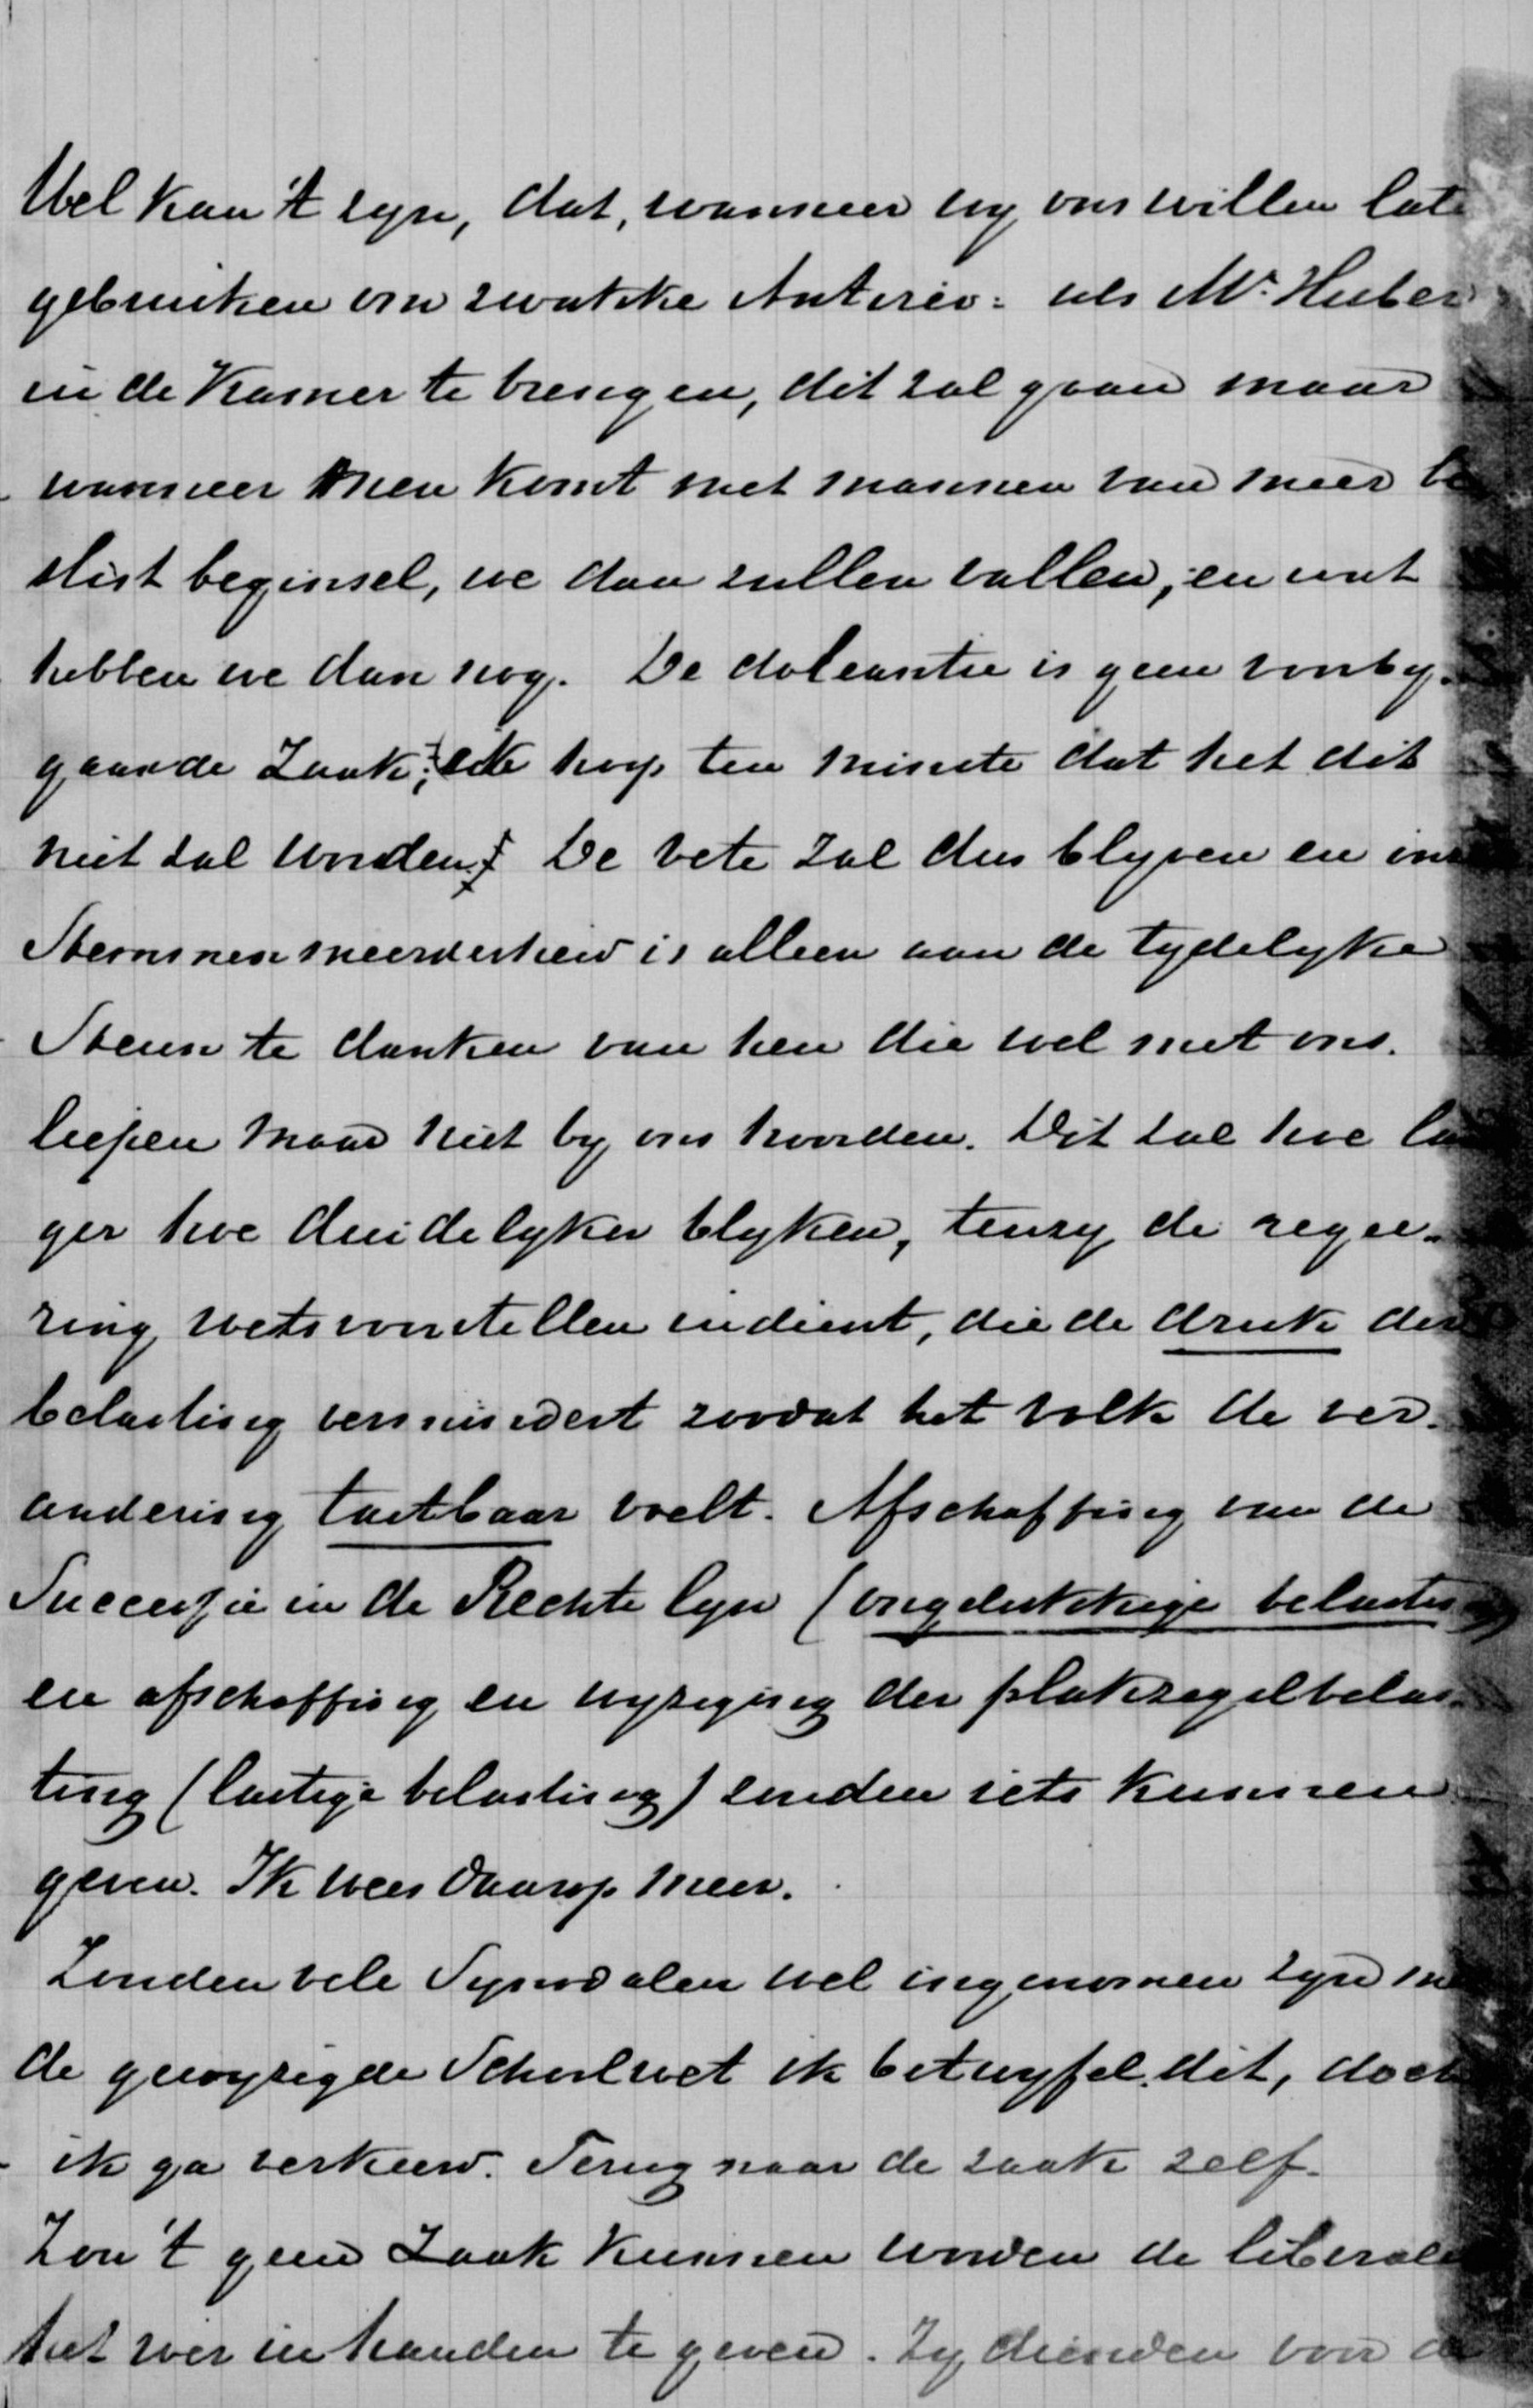 Wel kan 't zyn, dat, wanneer wy ons willen late
gebruiken om zwakke Antirev: als Mr. Huber
in de Kamer te brengen, dit zal gaan maar
wanneer men komt met mannen van meer be
slist beginsel, we dan zullen vallen, en wat
hebben we dan nog. De doleantie is geen voorby-
gaande Zaak; ik hoop ten minste dat het dit
niet zal worden. De vete zal dus blyven en onz
Stemmenmeerderheid is alleen aan de tydelyke
Steun te danken van hen die wel met ons.
liepen maar niet by ons hoorden. Dit zal hoe la
ger hoe duidelyker blyken, tenzy de regee-
ring wetsvoorstellen indient, die de druk der
belasting vermindert zoodat het volk de ver-
andering tastbaar voelt. Afschaffing van de
Successie in de Rechte lyn (ongelukkige belasting)
en afschaffing en wyziging der plakzegelbelas-
ting (lastige belasting) zouden iets kunnen
geven. Ik wees daarop meer.
Zouden vele Synodalen wel ingenomen zyn me
de gewyzigde Schoolwet ik betwyfel dit, doch
ik ga verkeerd. Terug naar de zaak zelf.
Zou 't geen Zaak kunnen worden de liberale
het roer in handen te geven. Zy dienden voor de